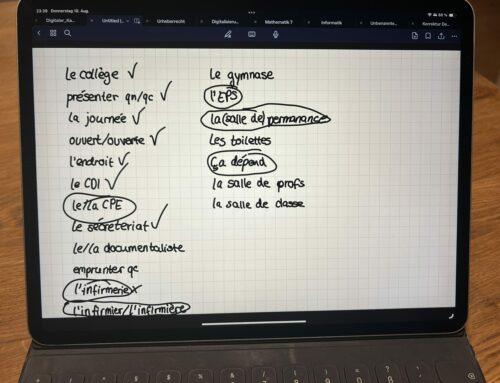 23:39 Donnerstag 10. Aug.
Untitled
Urheberrecht
Mathematik 7
Informatik
le collège
présenter qn/qc
la journée
ouvert/ouverte
l'endroit
le CDI
le/la CPE
le sécreteriat
le/la documentaliste
emprunter qc
l'infirmerie
l'infirmier/l'infirmière
le gymnase
l'EPS
la (salle de) permanance
les toilettes
ça dépend
la salle de profs
la salle de classe